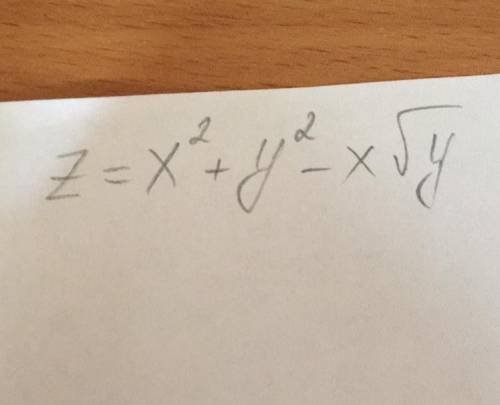 z = x² + y² - x√y